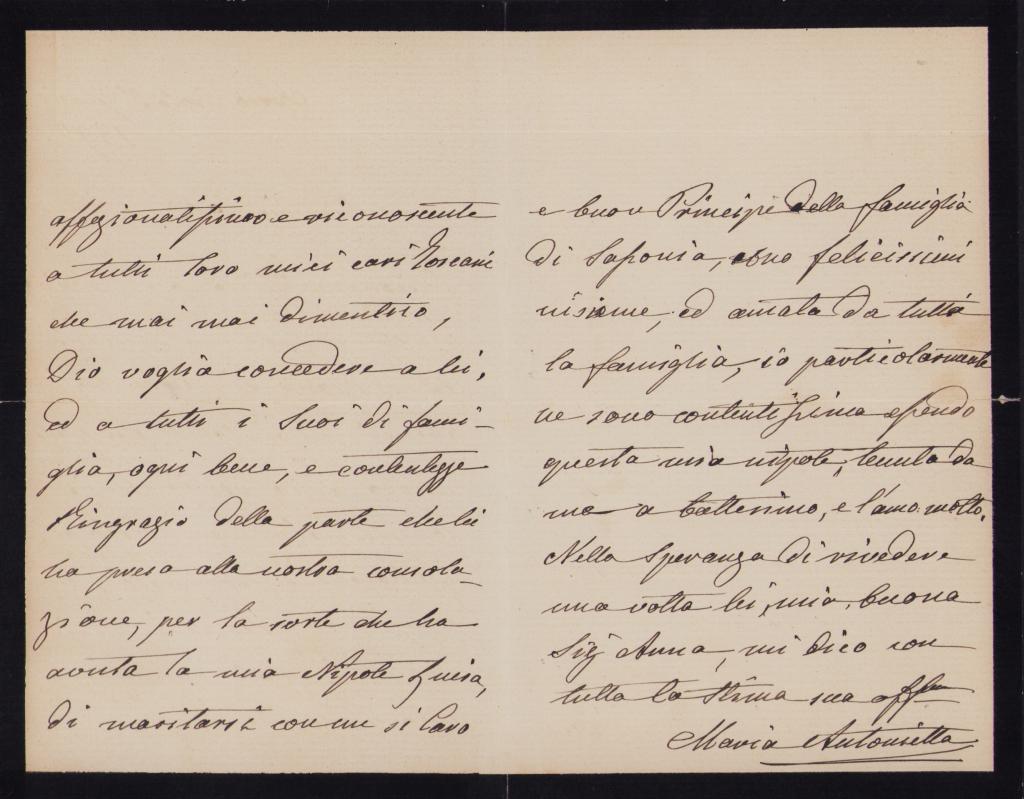 affezionatissimo e riconoscente
a tutti loro miei cari Toscani
che mai mai dimentico,
Dio voglia concedere a lei,
ed a tutti i Suoi di fami-
glia, ogni bene, e contentezze
Ringrazio della parte che lei
ha presa alla nostra consola-
zione, per la sorte che ha
avuta la mia Nipote Luisa,
di maritarsi con un sì caro
e buon Principe della famiglia
di Sassonia, sono felicissimi
insieme, ed amata da tutta
la famiglia, io particolarmente
ne sono contentissima essendo
questa mia nipote, tenuta da
me a battesimo, e l'amo molto.
Nella Speranza di rivedere
una volta lei, mia buona
Sig Anna, mi dico con
tutta la stima sua affma
Maria Antonietta